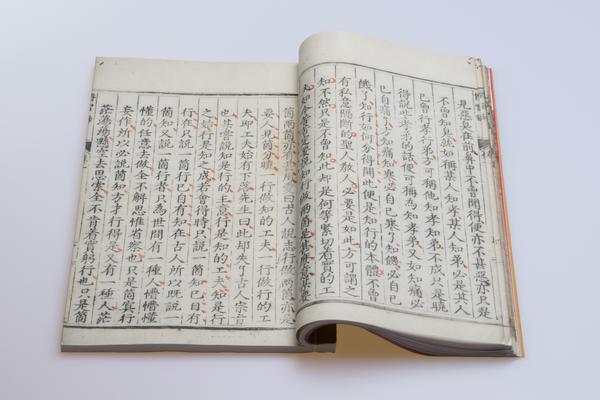 見惡臭在前鼻中不曾聞得便亦不甚惡亦只是
不曾知臭就如稱某人知孝某人知弟必是其人
已曾行孝行弟方可稱他知孝知弟不成只是曉
得說些孝弟的話便可稱為知孝弟又如知痛必
已自痛了方知痛知寒必已自寒了知饑必已自
饑了知行如何分得開此便是知行的本體不曾
有私意隔斷的聖人教人必要是如此方可謂之
知不然只是不曾知此却是何等緊切着實的工
夫如今苦苦定要說知行做兩箇是甚麼意某要
箇兩箇亦有甚用愛曰古人說知行做兩箇亦是
要人見箇分曉一行做知的工夫一行做行的工
夫即工夫始有下落先生曰此却失了古人宗旨
也某嘗說知是行的主意行是知的工夫知是行
之始行是知之成若會得時只說一箇知已自有
行在只說一箇行已自有知在古人所以既說一
箇知又說一箇行者只為世間有一種人懵懵懂
懂的任意去做全不解思惟省察也只是箇冥行
妄作所以必說箇知方才行得是又有一種人茫
茫蕩蕩懸空去思索全不肯着實躬行也只是箇